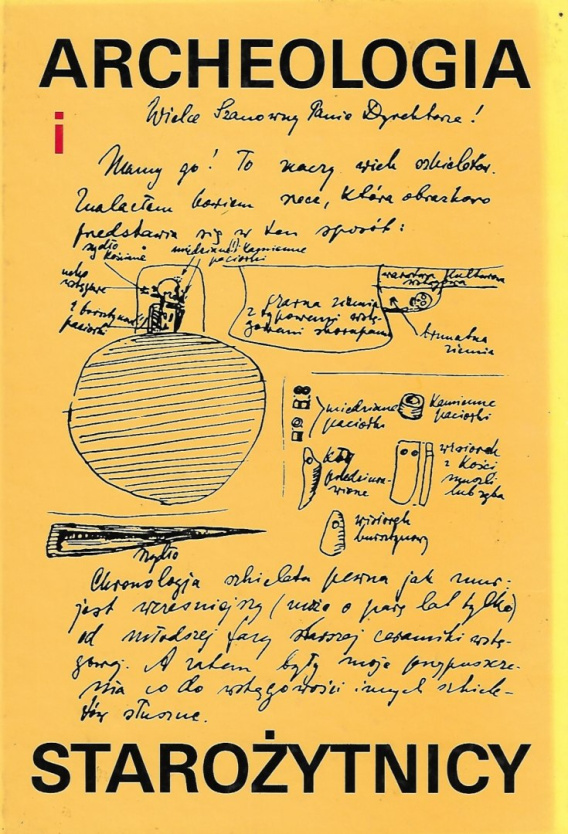 ARCHEOLOGIA
i
Wielce Szanowny Panie Dyrektorze!
Mamy go! To znaczy wiek szkieletów.
Znalazłem bowiem rzecz, która obrazkowo
przedstawia się w ten sposób:
szydło
kościane
miedziane i kamienne
paciorki
z bursztynu
paciorki
warstwa kulturowa
wstęgowa
czarna ziemia
z typowemi wstę-
gowemi skorupami
brunatna
ziemia
miedziane
paciorki
kamienne
paciorki
kły
przedziura-
wione
wisiorek
z kości
muszli
lub zęba
wisiorek
bursztynowy
szydło
Chronologia szkieletu pewna jak mur:
jest wcześniejszy (może o parę lat tylko)
od młodszej fazy starszej ceramiki wstę-
gowej. A zatem były moje przypuszcze-
nia co do wstęgowości innych szkiele-
tów słuszne.
STAROŻYTNICY